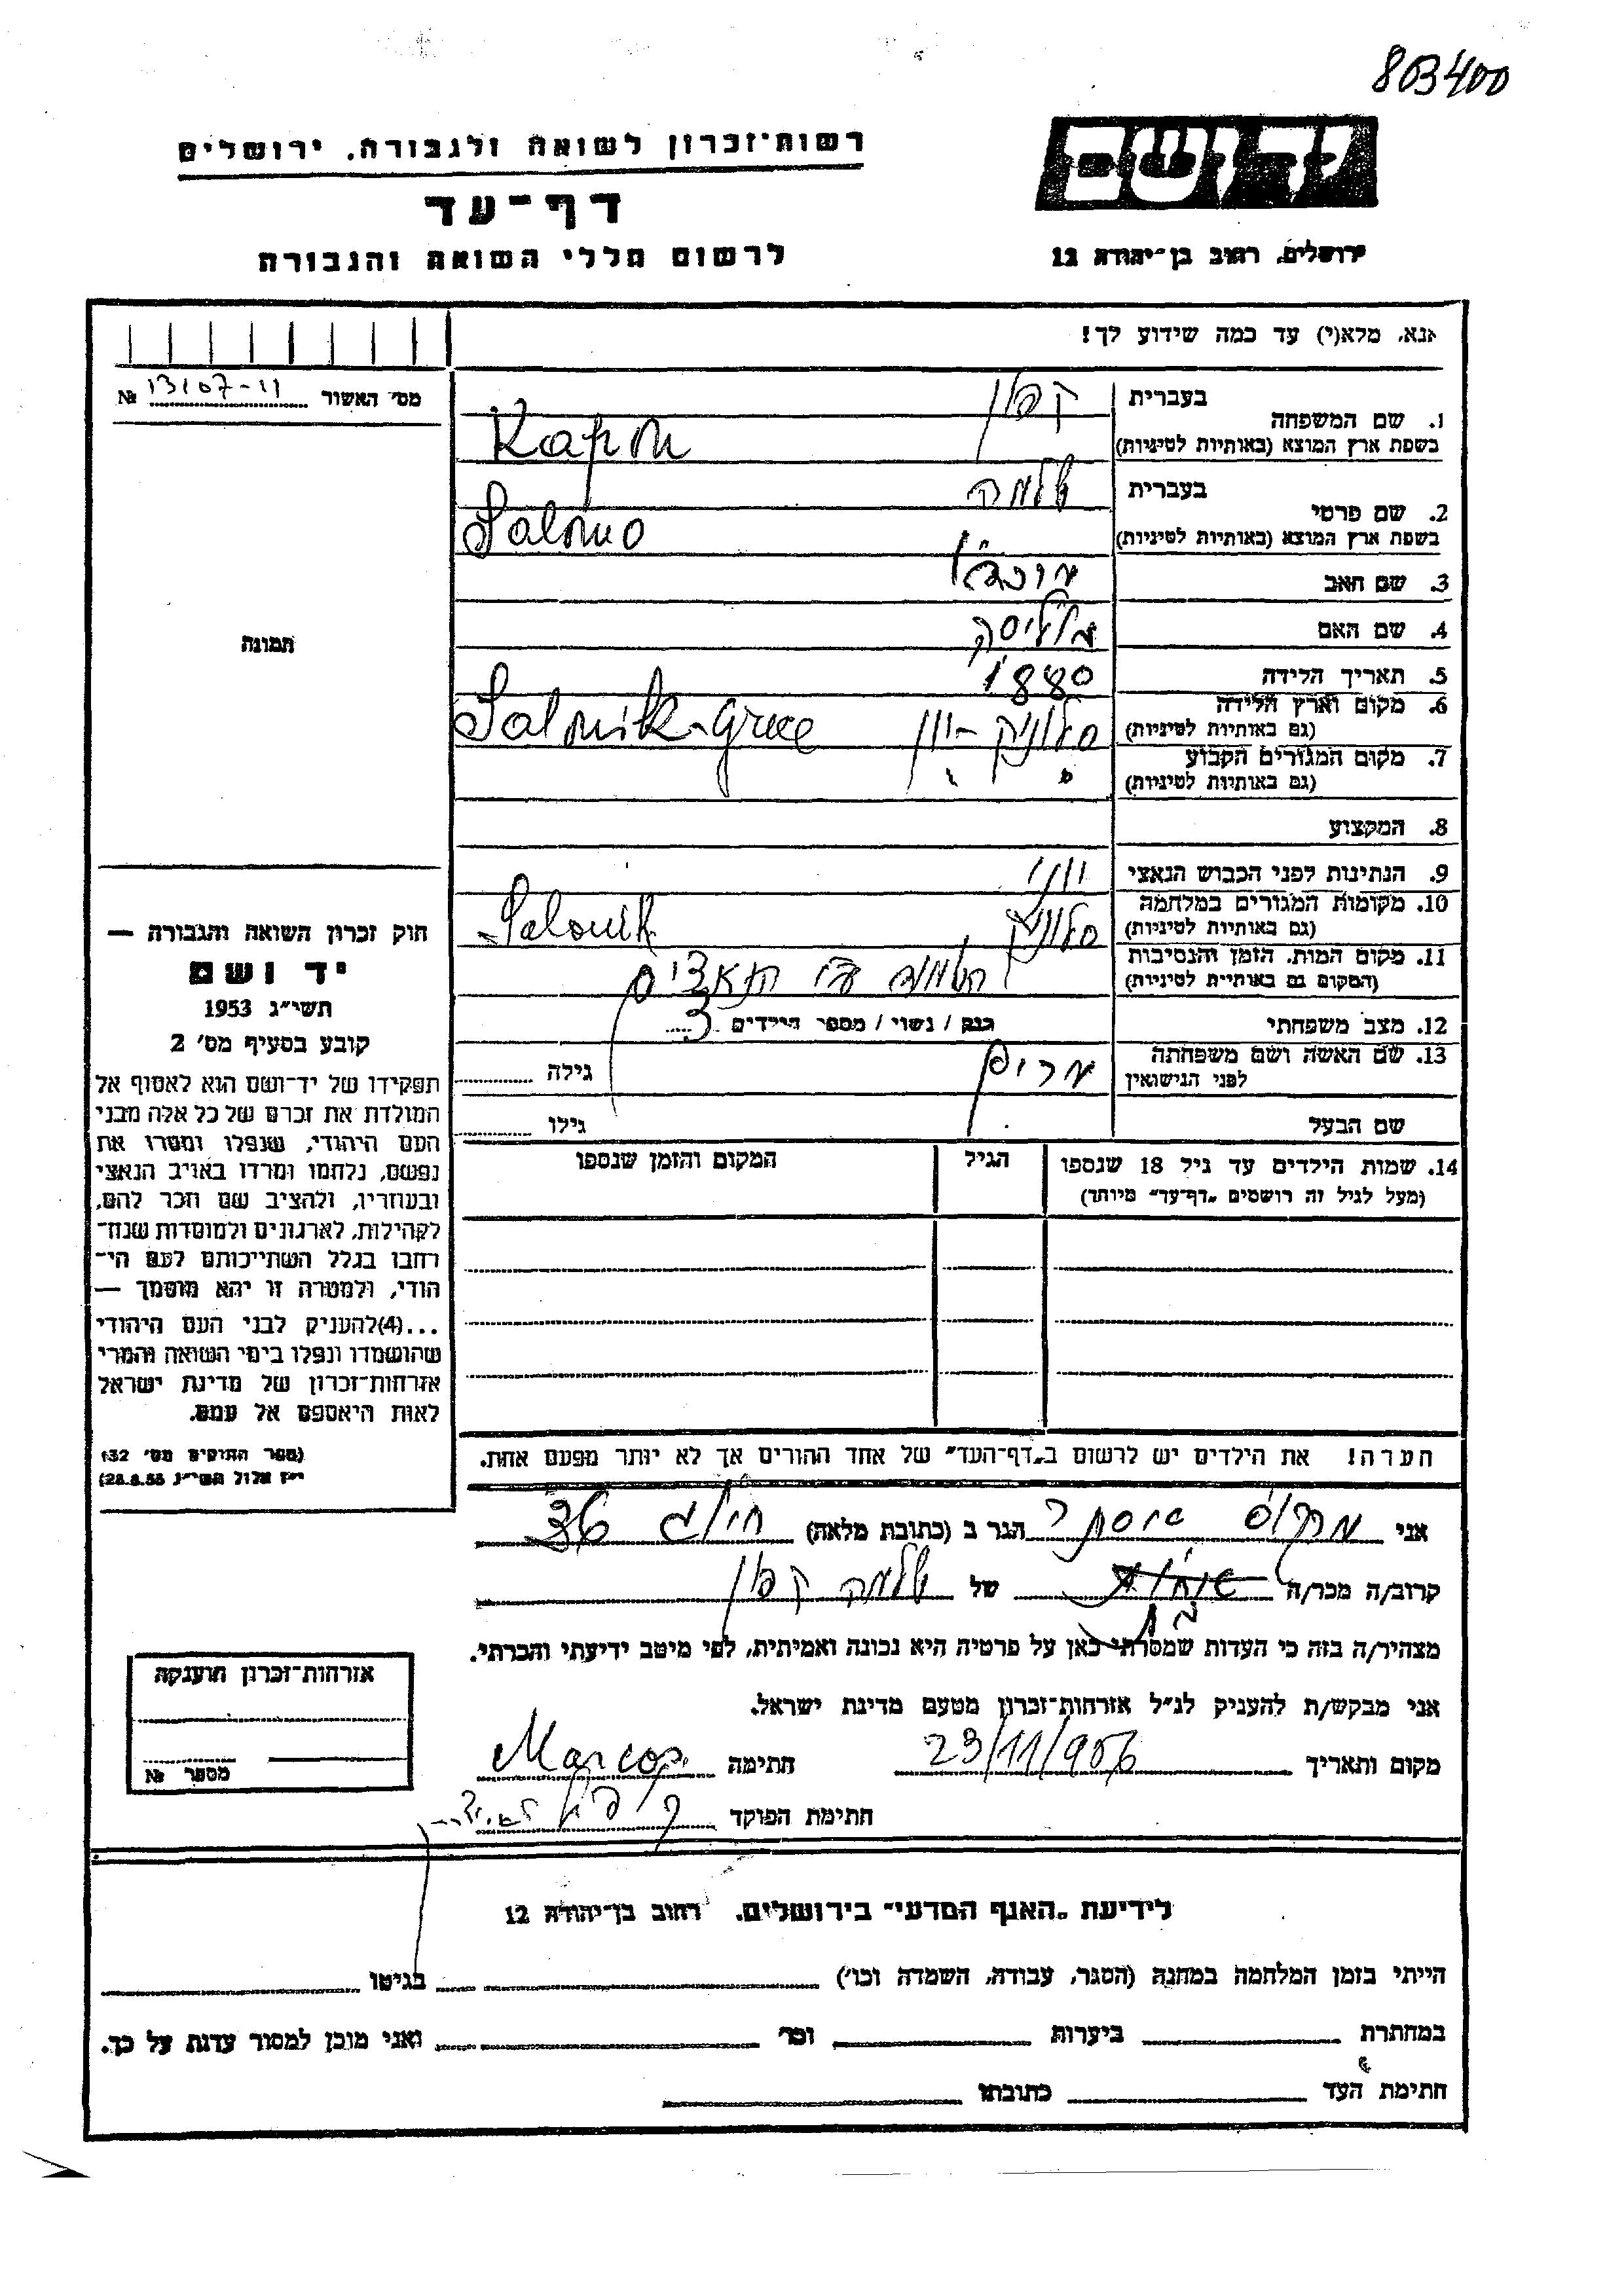 803400
רשות־זכרון לשואה ולגבורה. ירושלים
יד ושם
דף־עד
לרשום חללי השואה והגבורה
ירושלים, רחוב בן־יהודה 12
אנא, מלא(י) עד כמה שידוע לך!
מס׳ האשור 13107-11 №
1. שם המשפחה
בעברית קפון
בשפת ארץ המוצא (באותיות לטיניות) Kapon
2. שם פרטי
בעברית שלמה
בשפת ארץ המוצא (באותיות לטיניות) Salomo
3. שם האב
4. שם האם
5. תאריך הלידה 1880
6. מקום וארץ הלידה סלוניק - יון
(גם באותיות לטיניות) Salonik-Greece
7. מקום המגורים הקבוע
(גם באותיות לטיניות)
8. המקצוע
9. הנתינות לפני הכבוש הנאצי יוני
10. מקומות המגורים במלחמה סלוניק
(גם באותיות לטיניות) Salonik
11. מקום המות, הזמן והנסיבות הושמד ע״י הנאצים
(המקום גם באותיות לטיניות)
12. מצב משפחתי רווק / נשוי / מספר הילדים 3
13. שם האשה ושם משפחתה מרים גילה
לפני הנישואין
שם הבעל גילו
14. שמות הילדים עד גיל 18 שנספו הגיל המקום והזמן שנספו
(מעל לגיל זה רושמים „דף־עד״ מיוחד)
הערה! את הילדים יש לרשום ב„דף־העד״ של אחד ההורים אך לא יותר מפעם אחת.
תמונה
חוק זכרון השואה והגבורה —
יד ושם
תשי״ג 1953
קובע בסעיף מס׳ 2
תפקידו של יד־ושם הוא לאסוף אל
המולדת את זכרם של כל אלה מבני
העם היהודי, שנפלו ומסרו את
נפשם, נלחמו ומרדו באויב הנאצי
ובעוזריו, ולהציב שם וזכר להם,
לקהילות, לארגונים ולמוסדות שנח־
רבו בגלל השתייכותם לעם הי־
הודי, ולמטרה זו יהא מוסמך —
...(4)להעניק לבני העם היהודי
שהושמדו ונפלו בימי השואה והמרי
אזרחות־זכרון של מדינת ישראל
לאות היאספם אל עמם.
(ספר החוקים מס׳ 132
י״ז אלול תשי״ג 28.8.53)
אני מרקוס הגר ב (כתובת מלאה)
קרוב/ה מכר/ה בת של שלמה קפון
מצהיר/ה בזה כי העדות שמסרתי כאן על פרטיה היא נכונה ואמיתית, לפי מיטב ידיעתי והכרתי.
אני מבקש/ת להעניק לנ״ל אזרחות־זכרון מטעם מדינת ישראל.
מקום ותאריך 23/11/956 חתימה Marcos
חתימת הפוקד
אזרחות־זכרון הוענקה
מספר №
לידיעת „האגף המדעי״ בירושלים. רחוב בן־יהודה 12
הייתי בזמן המלחמה במחנה (הסגר, עבודה, השמדה וכו׳) בגיטו
במחתרת ביערות וכו׳ ואני מוכן למסור עדות על כך.
חתימת העד כתובתו